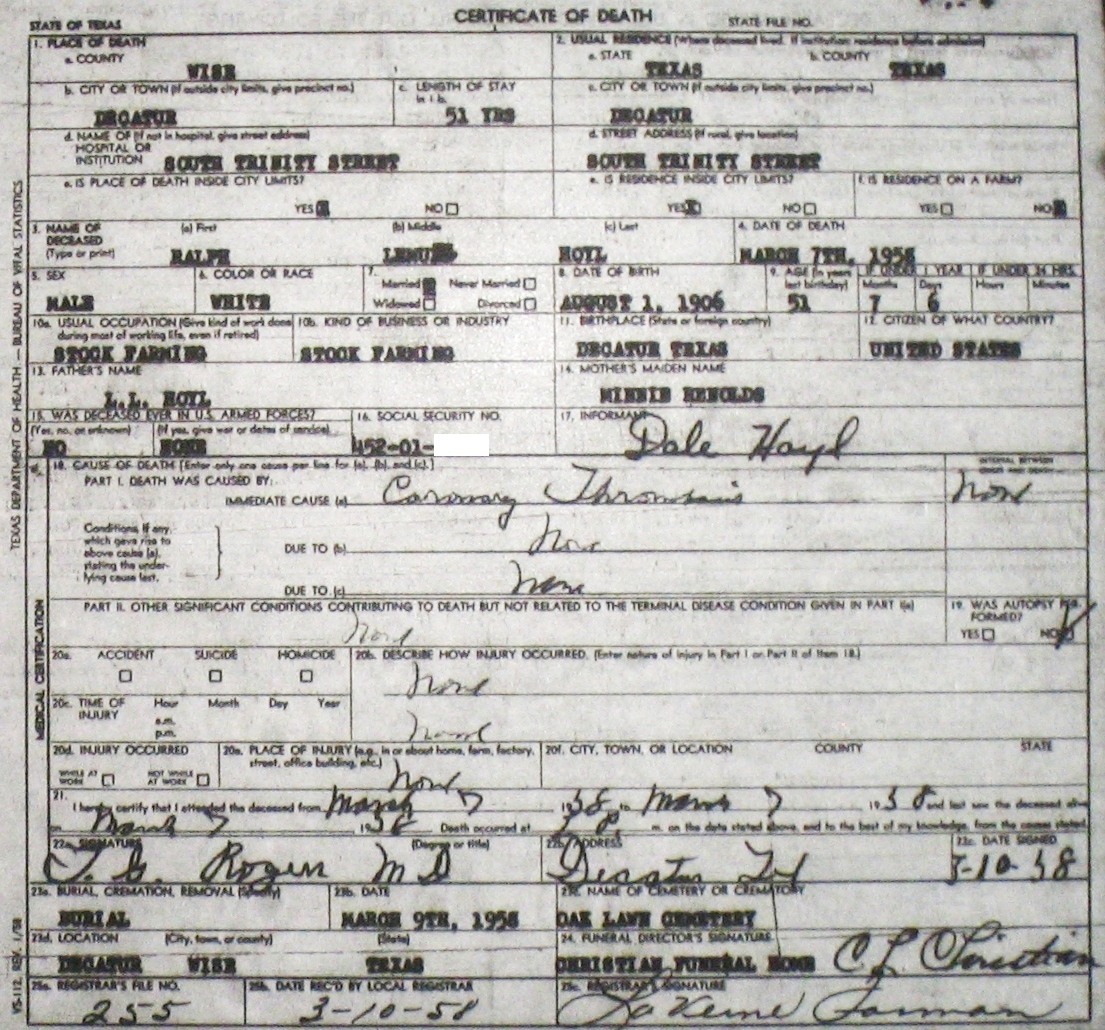 STATE OF TEXAS
CERTIFICATE OF DEATH
STATE FILE NO.
1. PLACE OF DEATH
2. USUAL RESIDENCE (Where deceased lived. If institution: residence before admission)
a. COUNTY
WISE
a. STATE
TEXAS
b. COUNTY
TEXAS
b. CITY OR TOWN (If outside city limits, give precinct no.)
DECATUR
c. LENGTH OF STAY in 1 b.
51 YRS
c. CITY OR TOWN (If outside city limits, give precinct no.)
DECATUR
d. NAME OF (If not in hospital, give street address)
HOSPITAL OR
INSTITUTION SOUTH TRINITY STREET
d. STREET ADDRESS (If rural, give location)
SOUTH TRINITY STREET
e. IS PLACE OF DEATH INSIDE CITY LIMITS?
YES NO
e. IS RESIDENCE INSIDE CITY LIMITS?
YES NO
f. IS RESIDENCE ON A FARM?
YES NO
3. NAME OF DECEASED
(Type or print)
(a) First
RALPH
(b) Middle
(c) Last
HOYL
4. DATE OF DEATH
MARCH 7TH, 1958
5. SEX
MALE
6. COLOR OR RACE
WHITE
7.
Married Never Married
Widowed Divorced
8. DATE OF BIRTH
AUGUST 1, 1906
9. AGE (In years last birthday)
51
IF UNDER 1 YEAR
Months Days
7 6
IF UNDER 24 HRS.
Hours Minutes
10a. USUAL OCCUPATION (Give kind of work done
during most of working life, even if retired)
STOCK FARMING
10b. KIND OF BUSINESS OR INDUSTRY
STOCK FARMING
11. BIRTHPLACE (State or foreign country)
DECATUR TEXAS
12. CITIZEN OF WHAT COUNTRY?
UNITED STATES
13. FATHER'S NAME
L.L. HOYL
14. MOTHER'S MAIDEN NAME
MINNIE RENOLDS
15. WAS DECEASED EVER IN U.S. ARMED FORCES?
(Yes, no, or unknown) (If yes, give war or dates of service)
NO NONE
16. SOCIAL SECURITY NO.
452-01-
17. INFORMANT
Dale Hoyl
18. CAUSE OF DEATH [Enter only one cause per line for (a), (b), and (c).]
INTERVAL BETWEEN
ONSET AND DEATH
PART I. DEATH WAS CAUSED BY:
IMMEDIATE CAUSE (a) Coronary Thrombosis
None
Conditions, if any,
which gave rise to
above cause (a),
stating the under-
lying cause last.
DUE TO (b) None
DUE TO (c) None
PART II. OTHER SIGNIFICANT CONDITIONS CONTRIBUTING TO DEATH BUT NOT RELATED TO THE TERMINAL DISEASE CONDITION GIVEN IN PART I(a)
None
19. WAS AUTOPSY PERFORMED?
YES NO
20a. ACCIDENT SUICIDE HOMICIDE
20b. DESCRIBE HOW INJURY OCCURRED. (Enter nature of injury in Part I or Part II of item 18.)
None
20c. TIME OF INJURY
Hour Month Day Year
a.m.
p.m.
None
20d. INJURY OCCURRED
WHILE AT WORK NOT WHILE AT WORK
20e. PLACE OF INJURY (e.g., in or about home, farm, factory,
street, office building, etc.)
None
20f. CITY, TOWN, OR LOCATION COUNTY STATE
21.
I hereby certify that I attended the deceased from March 7 1958 to March 7 1958 and last saw the deceased alive
on March 7 1958 Death occurred at m. on the date stated above, and to the best of my knowledge, from the causes stated.
22a. SIGNATURE (Degree or title)
Rogers M D
22b. ADDRESS
Decatur Tex
22c. DATE SIGNED
3-10-58
23a. BURIAL, CREMATION, REMOVAL (Specify)
BURIAL
23b. DATE
MARCH 9TH, 1958
23c. NAME OF CEMETERY OR CREMATORY
OAK LAWN CEMETERY
23d. LOCATION (City, town, or county) (State)
DECATUR WISE TEXAS
24. FUNERAL DIRECTOR'S SIGNATURE
CHRISTIAN FUNERAL HOME C L Christian
25a. REGISTRAR'S FILE NO.
255
25b. DATE REC'D BY LOCAL REGISTRAR
3-10-58
25c. REGISTRAR'S SIGNATURE
LaVerne
TEXAS DEPARTMENT OF HEALTH — BUREAU OF VITAL STATISTICS
MEDICAL CERTIFICATION
VS-112, REV. 1/58